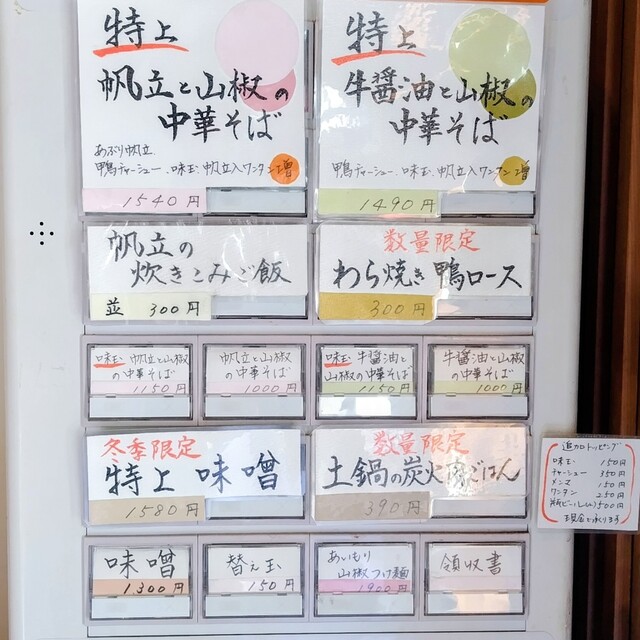 特上
帆立と山椒の
中華そば
あぶり帆立
鴨チャーシュー、味玉、帆立入ワンタン 増
1540円
特上
牛醤油と山椒の
中華そば
鴨チャーシュー、味玉、帆立入ワンタン 増
1490円
帆立の
炊きこみご飯
並 300円
数量限定
わら焼き鴨ロース
300円
味玉 帆立と山椒
の中華そば
1150円
帆立と山椒
の中華そば
1000円
味玉 牛醤油と
山椒の中華そば
1150円
牛醤油と山椒
の中華そば
1000円
冬季限定
特上 味噌
1580円
数量限定
土鍋の炭火豚ごはん
390円
味噌
1300円
替え玉
150円
あいもり
山椒つけ麺
1900円
領収書
追加トッピング
味玉 150円
チャーシュー 350円
メンマ 150円
ワンタン 250円
瓶ビール(小)500円
現金で承ります